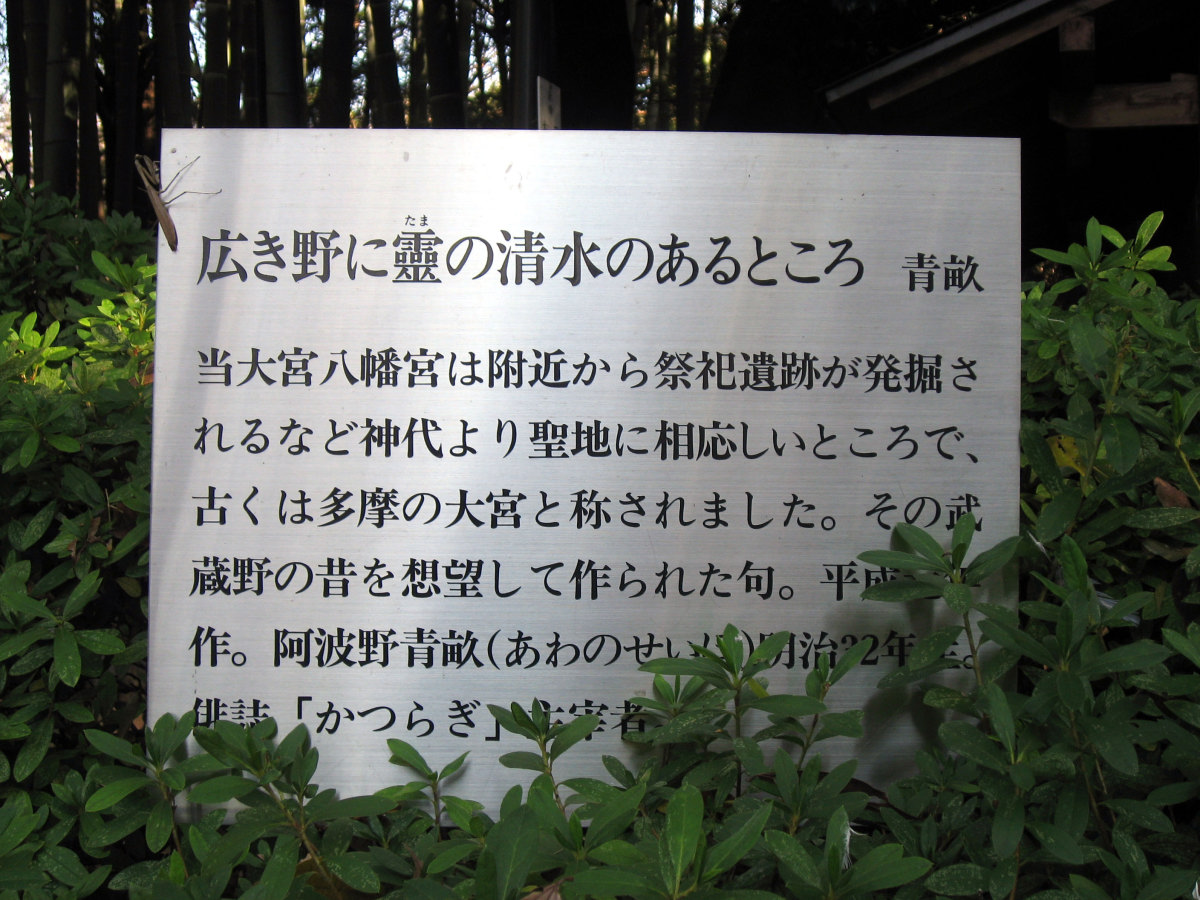 たま
広き野に靈の清水のあるところ 青畝
当大宮八幡宮は附近から祭祀遺跡が発掘さ
れるなど神代より聖地に相応しいところで、
古くは多摩の大宮と称されました。その武
蔵野の昔を想望して作られた句。平成
作。阿波野青畝(あわのせい)明治32年生。
俳誌「かつらぎ」主宰者